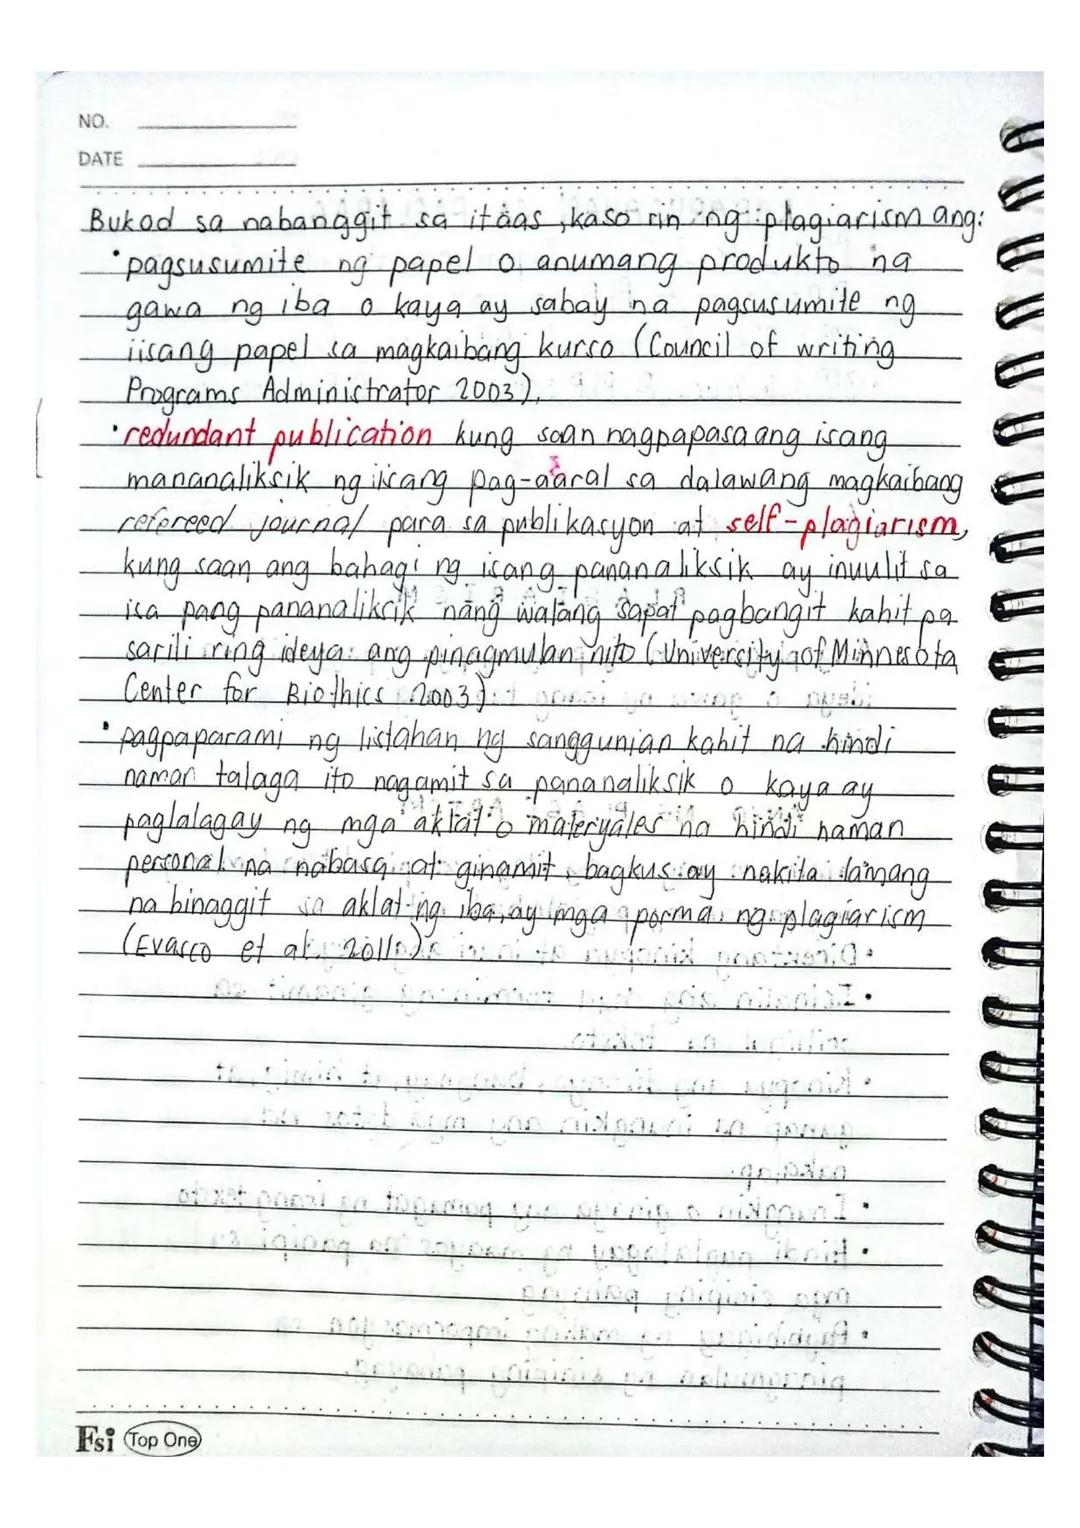 NO.
DATE
Bukod sa nabanggit sa itaas, kaso rin ng plagiarism ang:
• pagsusumite ng papel o anumang produkto na
gawa ng iba o kaya ay sabay na pagsusumite ng
iisang papel sa magkaibang kurso (Council of writing
Programs Administrator 2003).
• redundant publication kung saan nagpapasa ang isang
mananaliksik ng iisang pag-aaral sa dalawang magkaibang
refereed journal para sa publikasyon at self-plagiarism,
kung saan ang bahagi ng isang pananaliksik ay inuulit sa
isa pang pananaliksik nang walang sapat pagbangit kahit pa
sarili ring ideya ang pinagmulan nito (University of Minnesota
Center for Biothics 2003)
• pagpaparami ng listahan ng sanggunian kahit na hindi
naman talaga ito nagamit sa pananaliksik o kaya ay
paglalagay ng mga aklat o materyales na hindi naman
personal na nabasa at ginamit bagkus ay nakita lamang
na binaggit sa aklat ng iba, ay mga porma ng plagiarism
(Evasco et al. 2011).
Fsi Top One